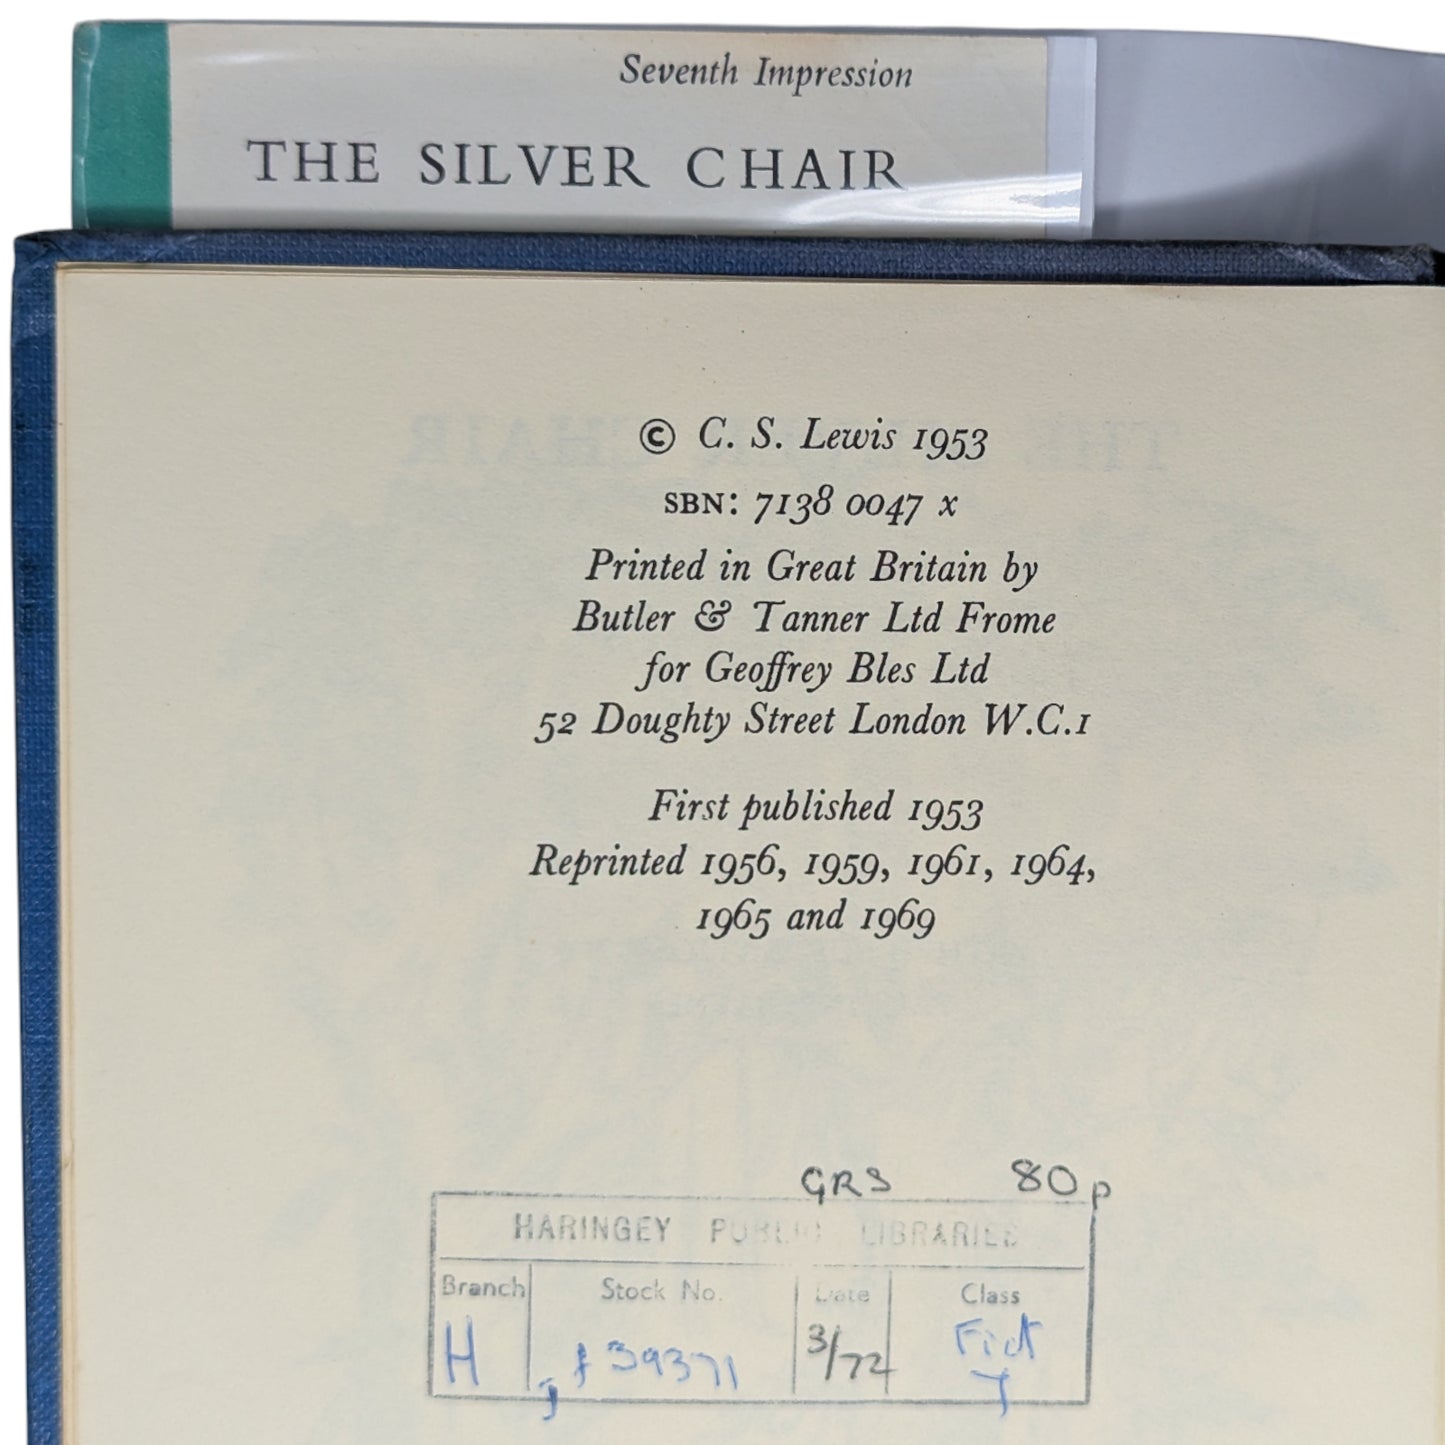 Seventh Impression
THE SILVER CHAIR
© C. S. Lewis 1953
SBN: 7138 0047 x
Printed in Great Britain by
Butler & Tanner Ltd Frome
for Geoffrey Bles Ltd
52 Doughty Street London W.C.1
First published 1953
Reprinted 1956, 1959, 1961, 1964,
1965 and 1969
GRS 80p
HARINGEY PUBLIC LIBRARIES
Branch Stock No. Date Class
H 39371 3/72 Fict
J J